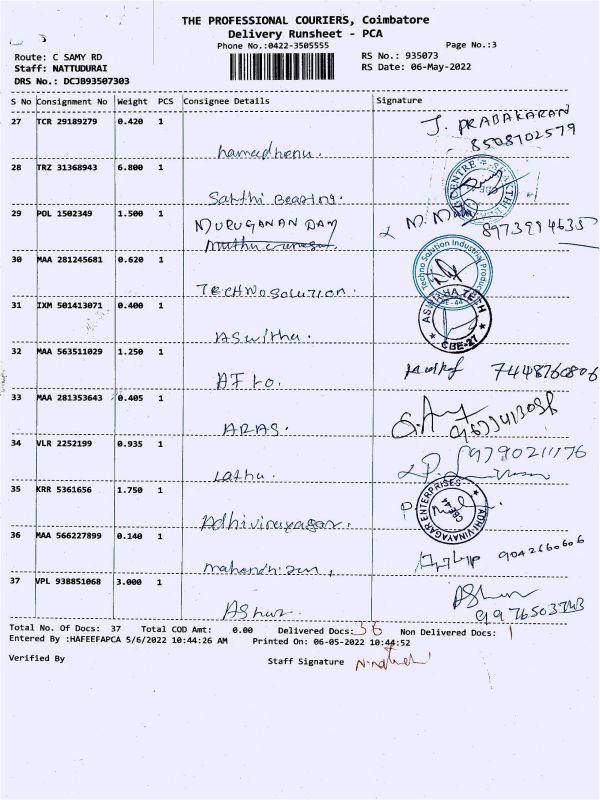 THE PROFESSIONAL COURIERS, Coimbatore
Delivery Runsheet - PCA
Phone No.:0422-3505555
Page No.:3
Route: C SAMY RD
Staff: NATTUDURAI
DRS No.: DCJB93507303
RS No.: 935073
RS Date: 06-May-2022
S No Consignment No Weight PCS Consignee Details Signature
27 TCR 29189279 0.420 1
J. PRABAKARAN
8508702579
28 TRZ 31368943 6.800 1
Sakthi Bearing.
29 POL 1502349 1.500 1
MURUGANAN DAM
8973994635
30 MAA 281245681 0.620 1
TECHNOSOLUTION.
Techno Solution Industrial Produc
31 IXM 501413071 0.400 1
ASwitha.
CBE-27
32 MAA 563511029 1.250 1
7448760806
33 MAA 281353643 0.405 1
ARAS.
34 VLR 2252199 0.935 1
Latha.
9790211176
35 KRR 5361656 1.750 1
Adhivinayagar.
ADHI-VINAYAGAR ENTERPRISES
36 MAA 566227899 0.140 1
9042660606
37 VPL 938851068 3.000 1
Total No. Of Docs: 37 Total COD Amt: 0.00 Delivered Docs: 36 Non Delivered Docs: 1
Entered By :HAFEEFAPCA 5/6/2022 10:44:26 AM Printed On: 06-05-2022 10:44:52
Verified By
Staff Signature